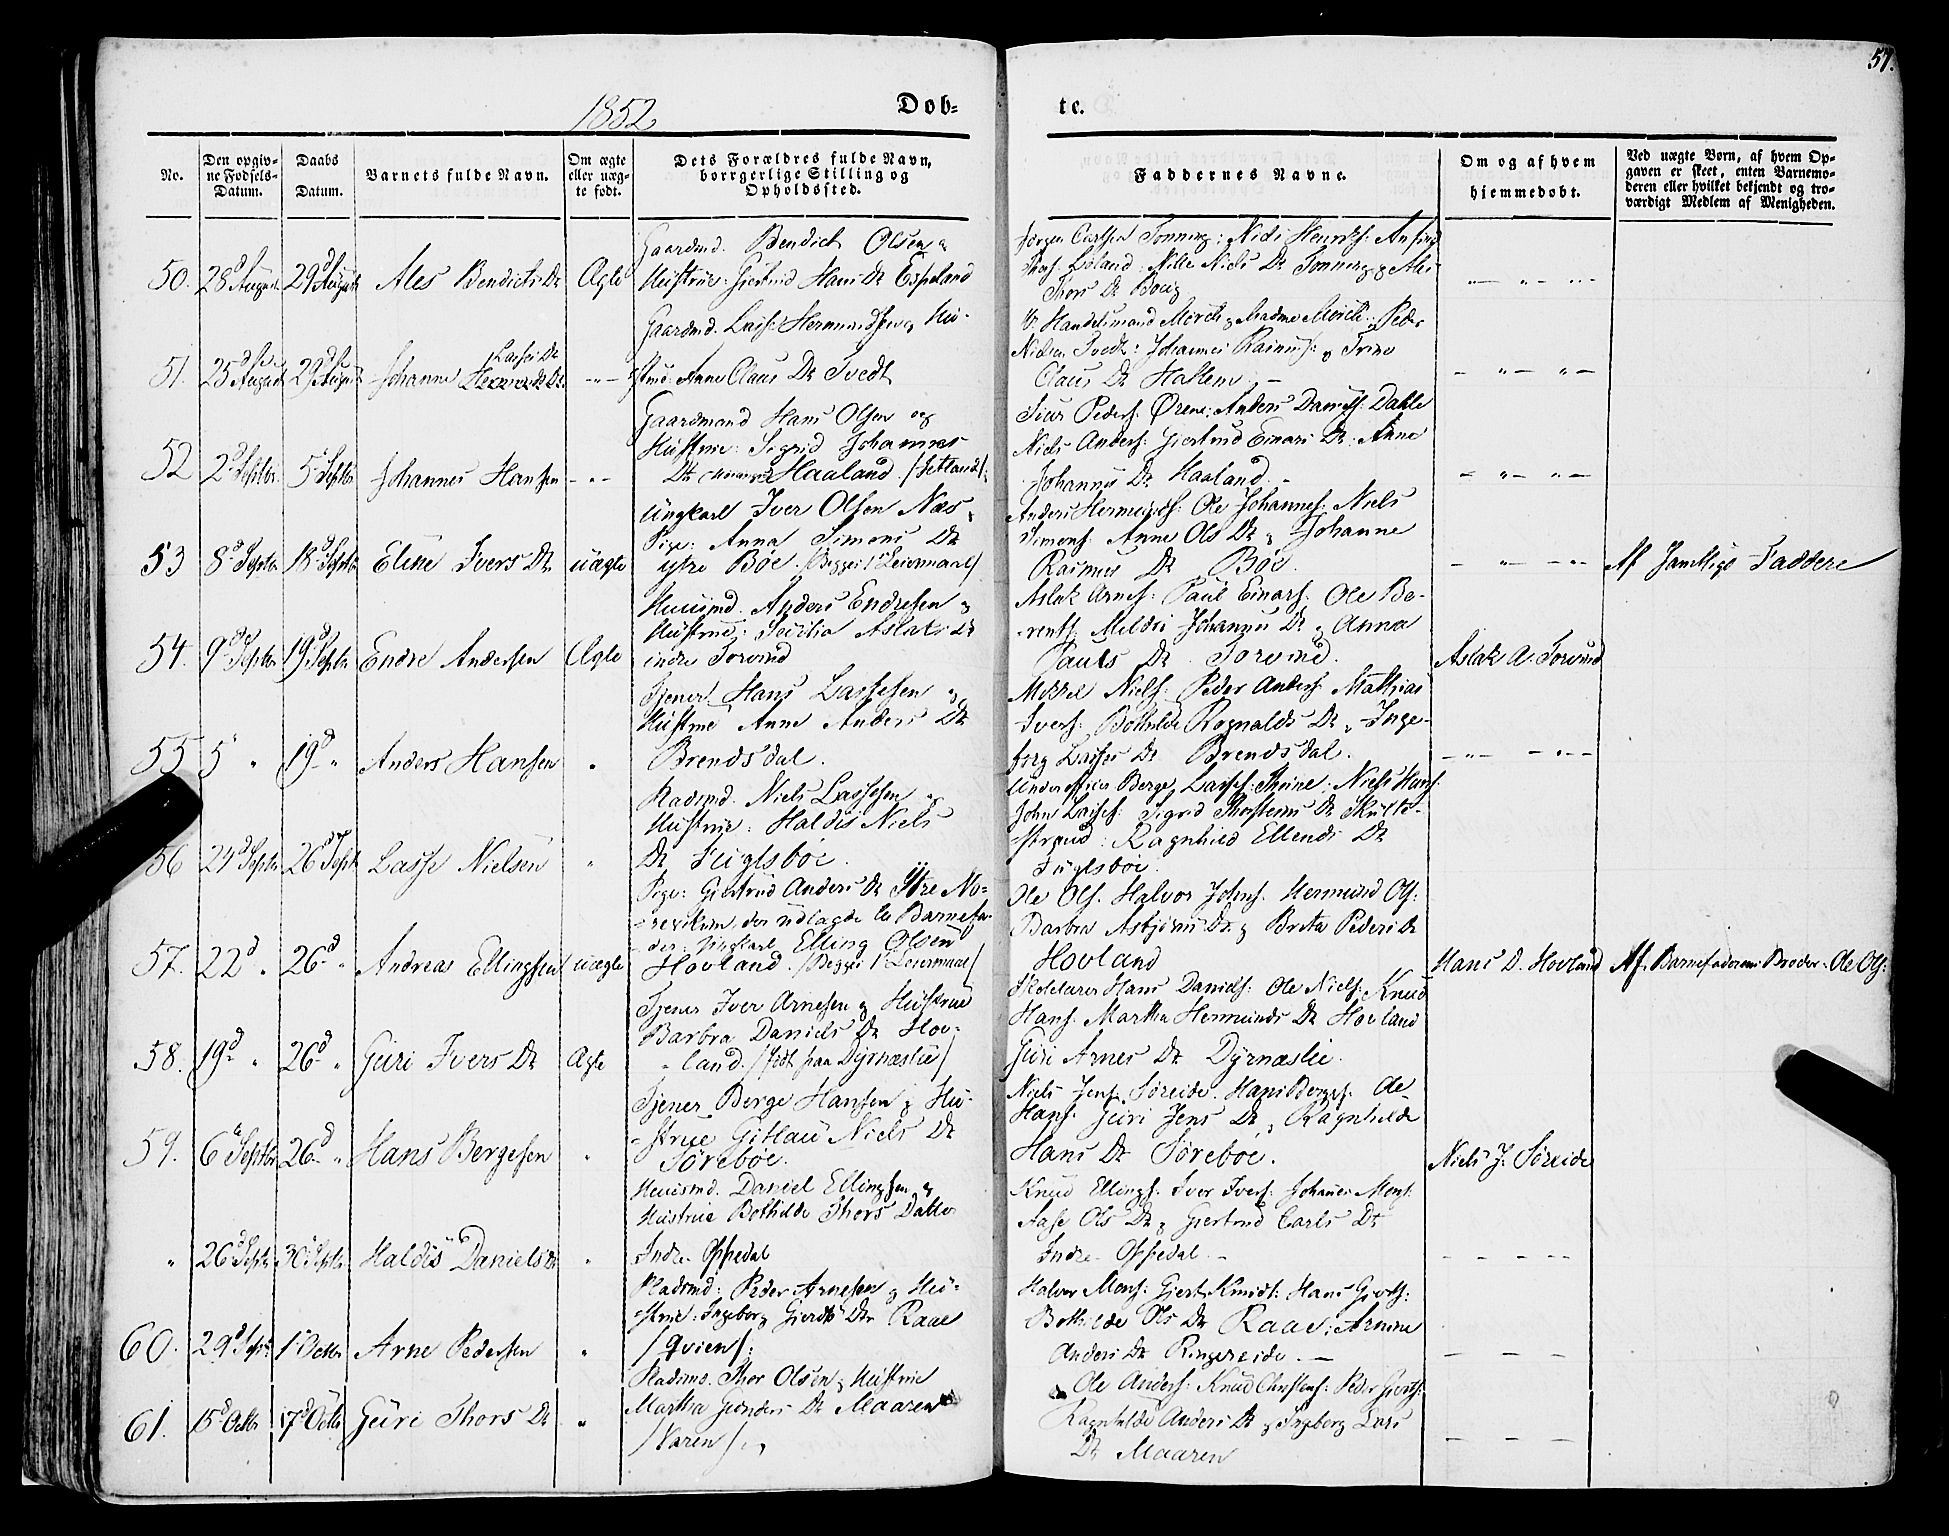 57.
1852
Dob=
te.
No.
Den opgiv-
ne Fødsels-
Datum.
Daabs
Datum.
Barnets fulde Navn.
Om ægte
eller uæg-
te født.
Dets Forældres fulde Navn,
borrgerlige Stilling og
Opholdssted.
Faddernes Navne.
Om og af hvem
hjemmedøbt.
Ved uægte Børn, af hvem Op-
gaven er skeet, enten Barnemo-
deren eller hvilket bekjendt og tro-
værdigt Medlem af Menigheden.
50. 28d August 29d August Ales Bendicts Dr Ægte
Gaardmd. Bendict Olsen &
Hustrue: Giertrud Hans Dr Espeland
Jørgen Carlsen Tonning: Nicli Henriks:
Nille Niels Dr Tonning & Ales
Thors Dr
51. 25d August 29d August Johanne Lasses Dr
Gaardmd. Lasse Hermundsen & Hu-
strue Anne Claus Dr Tvedt
Handelsmand & Madme : Peder
Nielsen Tvedt: Johannes Rasmus: & Trine
Claus Dr Hatlem
52 2d Septbr. 5d Septbr Johannes Hansen
Gaardmand Hans Olsen og
Hustrue: Sigrid Johannes
Dr Haaland /Jetland/
Siur Peders: Ørene: Anders Daniels: Dahle
Niels Anders: Giertrud Einars Dr: Anne
Johannes Dr Haaland.
53 8d Septbr 18d Septbr Eline Ivers Dr uægte
Ungkarl Iver Olsen Næs,
Pige: Anna Simons Dr
ytre Böe. /Begges 1ste Leiermaal/
Anders Hermunds: Ole Johannes: Niels
Simons: Anne Ols Dr & Johanne
Rasmus Dr Böe.
Af Samtlige Faddere
54. 9de Septbr 19d Septbr Endre Andersen Ægte
Huusmd. Anders Endresen &
Hustrue: Secilia Aslaks Dr
indre Torvund
Aslak Arnes: Paul Einars: Ole Be-
rents: Mildri Johannes Dr & Anna
Pauls Dr Torvund.
Aslak A. Torvund
55 5 " 19d " Anders Hansen "
Tjener Hans Lassesen &
Hustrue Anne Anders Dr
Brendsdal.
Mikkel Niels: Peder Anders: Mathias
Ivers: Bothilde Ragnalds Dr & Inge-
borg Lasses Dr Brendsdal.
56 24d Septbr 26d Septr Lasse Nielsen "
Kadsmd. Niels Lassesen &
Hustrue: Haldis Niels
Dr Fuglsböe.
Underofficer Berge Lasses: Steine: Niels Hans:
John Lasses: Sigrid Thorsteins Dr Skulle-
strand: Ragnhild Ellends Dr
Fuglsböe.
57. 22d " 26d " Andreas Ellingsen uægte
Pige: Giertrud Anders Dr Ytre No-
revikum, der udlagde til Barnefa-
der: Ungkarl Elling Olsen
Hovland. /Begges 1ste Leiermaal/
Ole Ols: Halvor Johns: Hermund Ols:
Barbra Asbjörns Dr & Brita Peders Dr
Hovland
Hans D. Hovland
Af Barnefaderens Broder Ole Ols:
58. 19d " 26d " Guri Ivers Dr Ægte
Tjener Iver Arnesen & Hustrue
Barbra Daniels Dr Hov-
land. /födt paa Dyrnæslie/
Skolelærer Hans Daniels: Ole Niels: Knud
Hans: Martha Hermunds Dr Hovland
Guri Arnes Dr Dyrnæslie.
59. 6te Septbr 26d " Hans Bergesen "
Tjener Berge Hansen & Hu-
strue Gitlau Niels Dr
Söreböe.
Niels Jens: Söreide. Hans Berges: Ole
Hans: Guri Jens Dr & Ragnhilde
Hans Dr Söreböe.
Niels J. Söreide
" 26d Septr 30d Septbr Haldis Daniels Dr "
Huusmd. Daniel Ellingsen &
Hustrue Bothilde Thors Datter
Indre Oppedal
Knud Ellings: Iver Ivers: Johannes Mons:
Aase Ols Dr & Giertrud Carls Dr
Indre Oppedal.
60. 29d Septr 1 Octbr Arne Pedersen "
Pladsmd: Peder Arnesen & Hu-
strue: Ingeborg Gierts Dtr Raae
/Qvien/:
Halvor Mons: Giert Knuds: Hans Gierts:
Bothilde Ols Dr Raae: Arnine
Anders Dr Ringereide.
61. 15d Octbr 17d Octbr Guri Thors Dr "
Pladsms. Thor Olsen & Hustrue
Martha Gunders Dr Maaren
/Varen/
Ole Anders: Knud Christens: Peder Gierts:
Ragnhilde Anders Dr & Ingeborg Lars
Dr Maaren